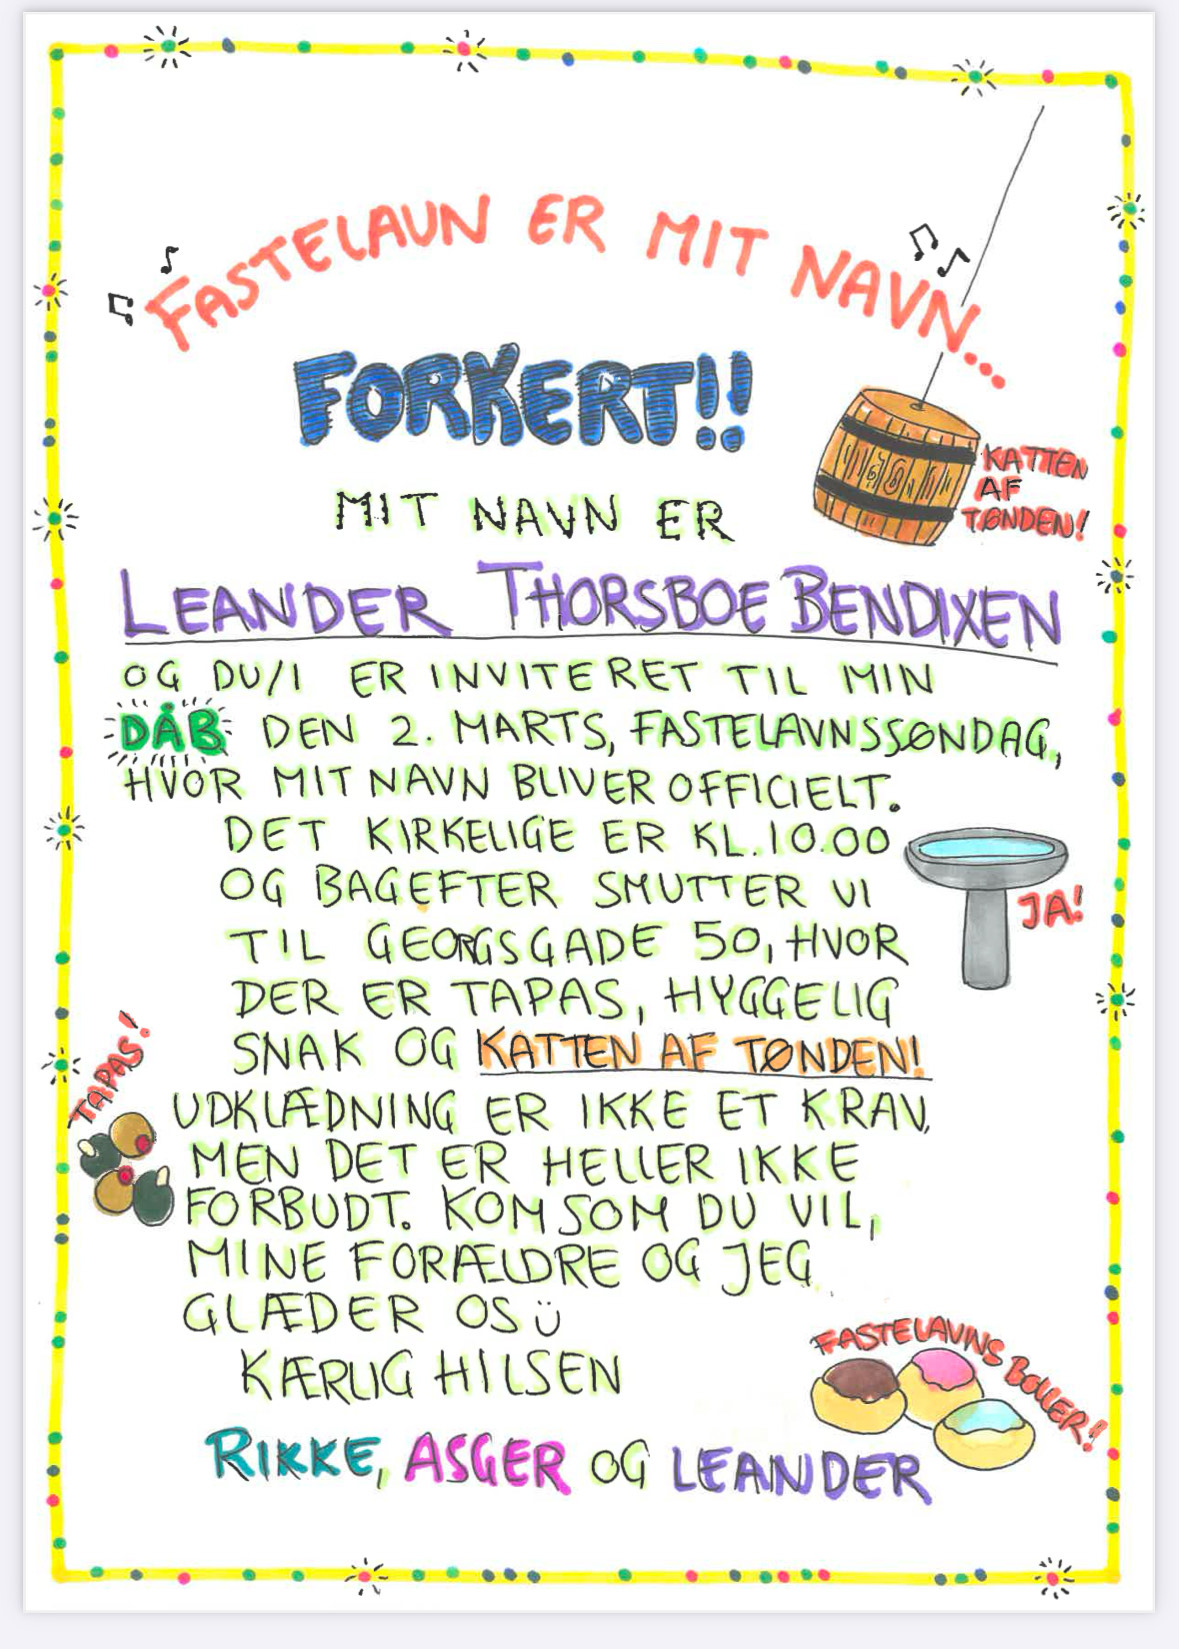 FASTELAVN ER MIT NAVN...
FORKERT!!
KATTEN
AF
TØNDEN!
MIT NAVN ER
LEANDER THORSBOE BENDIXEN
OG DU/I ER INVITERET TIL MIN
DÅB DEN 2. MARTS, FASTELAVNSSØNDAG,
HVOR MIT NAVN BLIVER OFFICIELT.
DET KIRKELIGE ER KL.10.00
OG BAGEFTER SMUTTER VI
JA!
TIL GEORGSGADE 50, HVOR
DER ER TAPAS, HYGGELIG
SNAK OG KATTEN AF TØNDEN!
TAPAS!
UDKLÆDNING ER IKKE ET KRAV,
MEN DET ER HELLER IKKE
FORBUDT. KOM SOM DU VIL,
MINE FORÆLDRE OG JEG
GLÆDER OS Ü
KÆRLIG HILSEN
FASTELAVNS BOLLER!
RIKKE, ASGER OG LEANDER